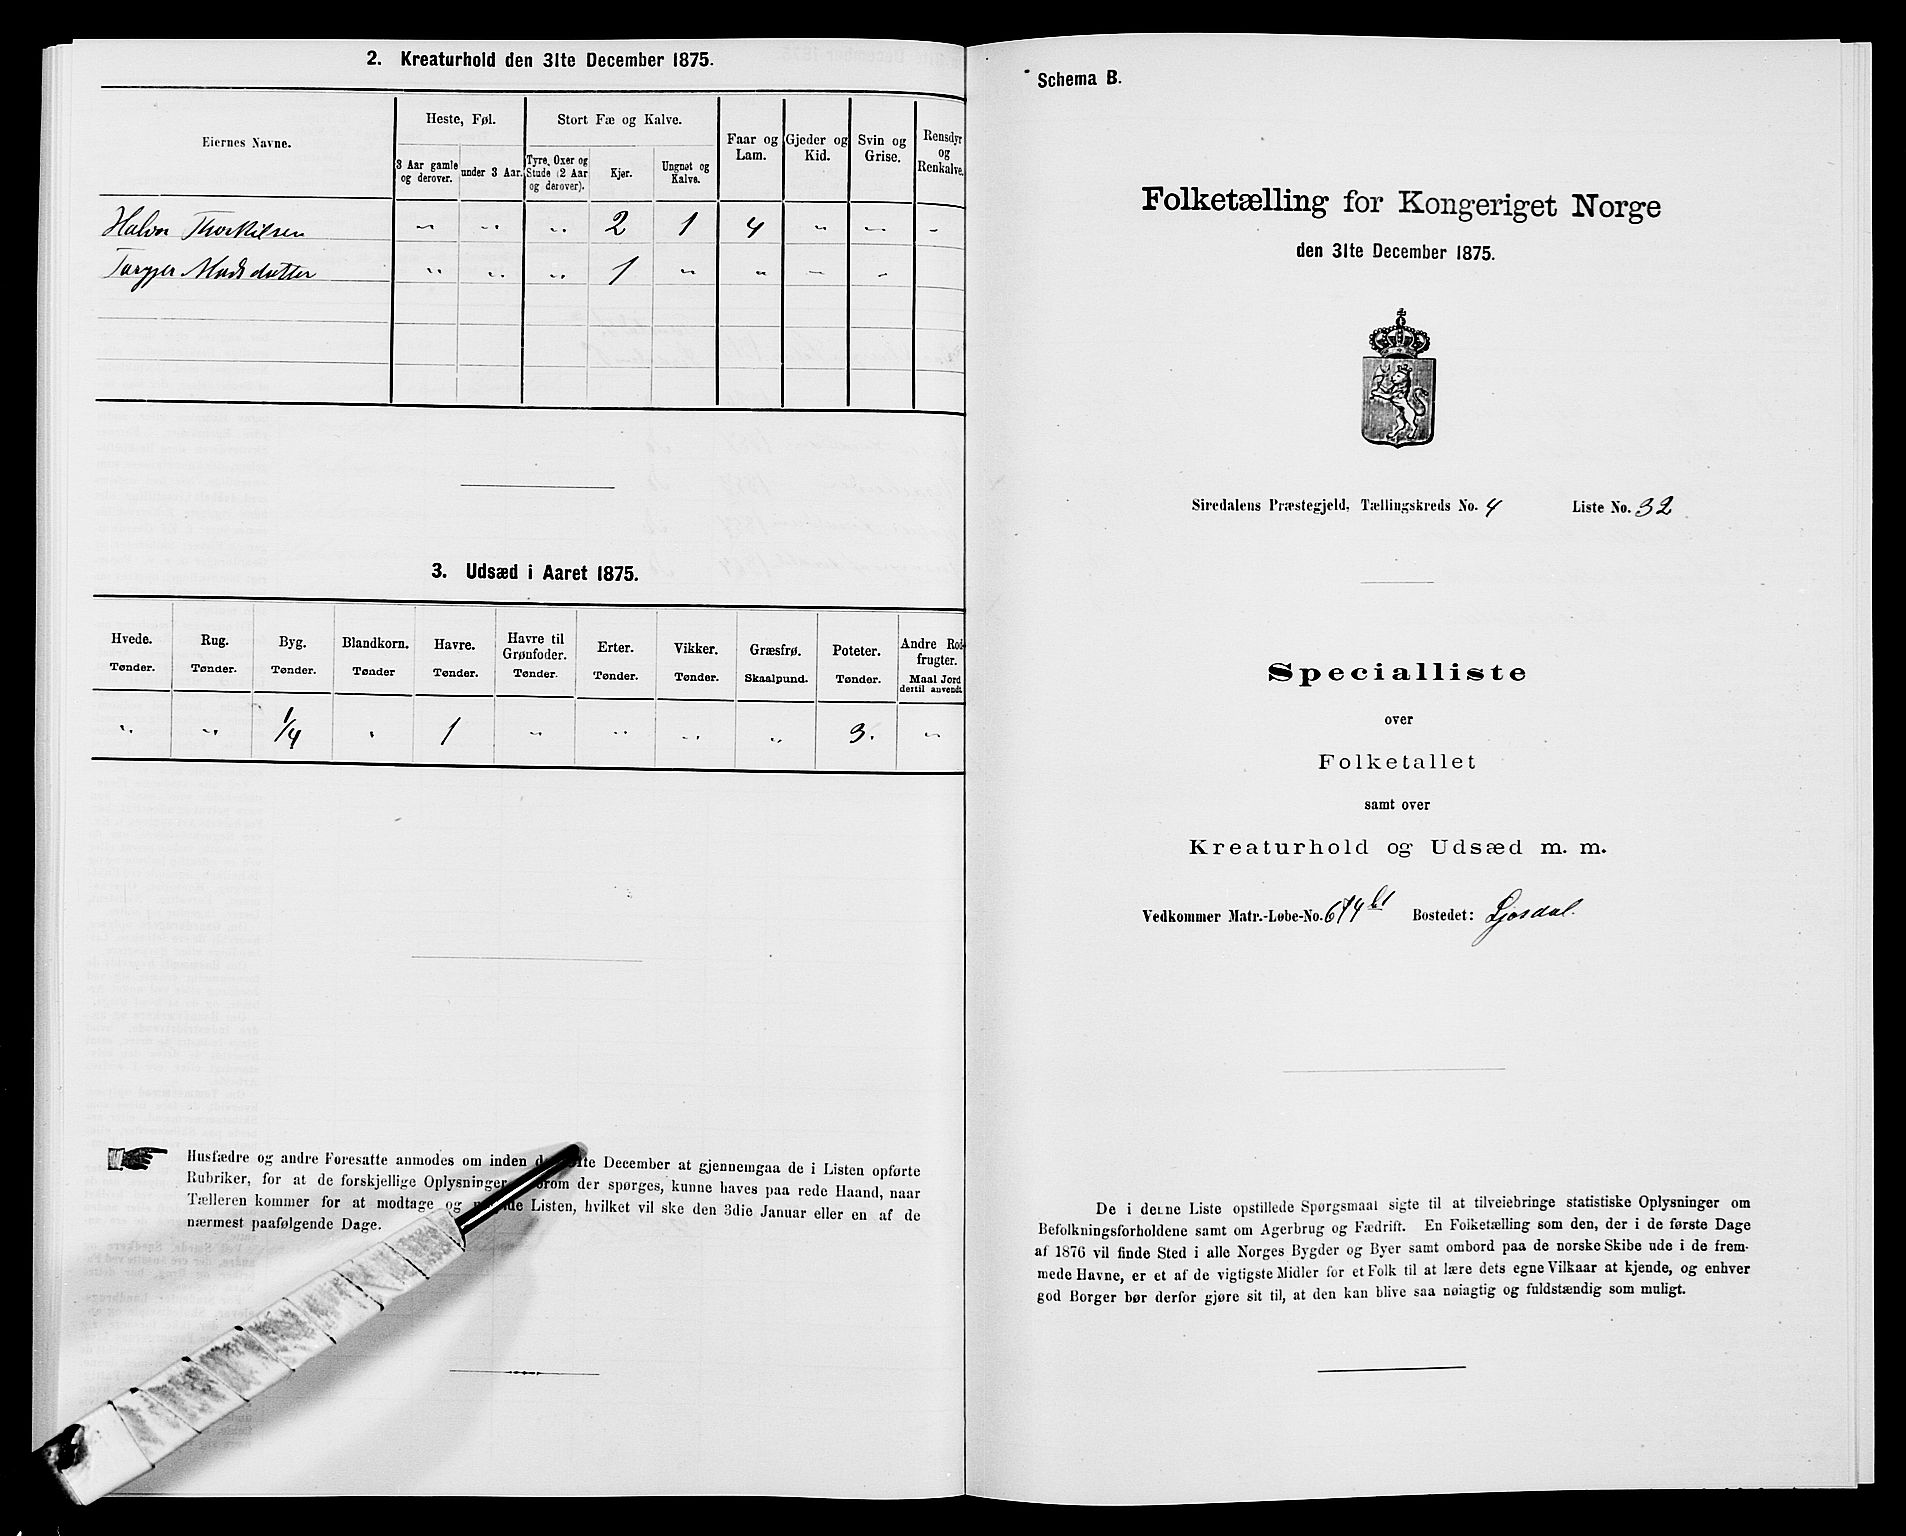 2. Kreaturhold den 31te December 1875.
Eiernes Navne.
Heste, Føl.
Stort Fæ og Kalve.
Faar og Lam.
Gjeder og Kid.
Svin og Grise.
Rensdyr og Renkalve.
3 Aar gamle og derover.
under 3 Aar.
Tyre, Oxer og Stude (2 Aar og derover).
Kjør.
Ungnøt og Kalve.
Halvor Thorkilsen " " " 2 1 4 " " "
Torgjer Madsdatter " " " 1 " " " "
3. Udsæd i Aaret 1875.
Hvede. Rug. Byg. Blandkorn. Havre. Havre til Grønfoder. Erter. Vikker. Græsfrø. Poteter. Andre Rodfrugter.
Tønder. Tønder. Tønder. Tønder Tønder. Tønder. Tønder. Tønder. Skaalpund. Tønder. Maal Jord dertil anvendt.
" " 1/4 " 1 " " " " 3. "
Husfædre og andre Foresatte anmodes om inden December at gjennemgaa de i Listen opførte
Rubriker, for at de forskjellige Oplysninger der spørges, kunne haves paa rede Haand, naar
Tælleren kommer for at modtage og Listen, hvilket vil ske den 3die Januar eller en af de
nærmest paafølgende Dage.
Schema B.
Folketælling for Kongeriget Norge
den 31te December 1875.
Siredalens Præstegjeld, Tællingskreds No. 4 Liste No. 32
Specialliste
over
Folketallet
samt over
Kreaturhold og Udsæd m. m.
Vedkommer Matr.-Løbe-No. 674 b1 Bostedet: Ljosdal.
De i denne Liste opstillede Spørgsmaal sigte til at tilveiebringe statistiske Oplysninger om
Befolkningsforholdene samt om Agerbrug og Fædrift. En Folketælling som den, der i de første Dage
af 1876 vil finde Sted i alle Norges Bygder og Byer samt ombord paa de norske Skibe ude i de frem-
mede Havne, er et af de vigtigste Midler for et Folk til at lære dets egne Vilkaar at kjende, og enhver
god Borger bør derfor gjøre sit til, at den kan blive saa nøiagtig og fuldstændig som muligt.